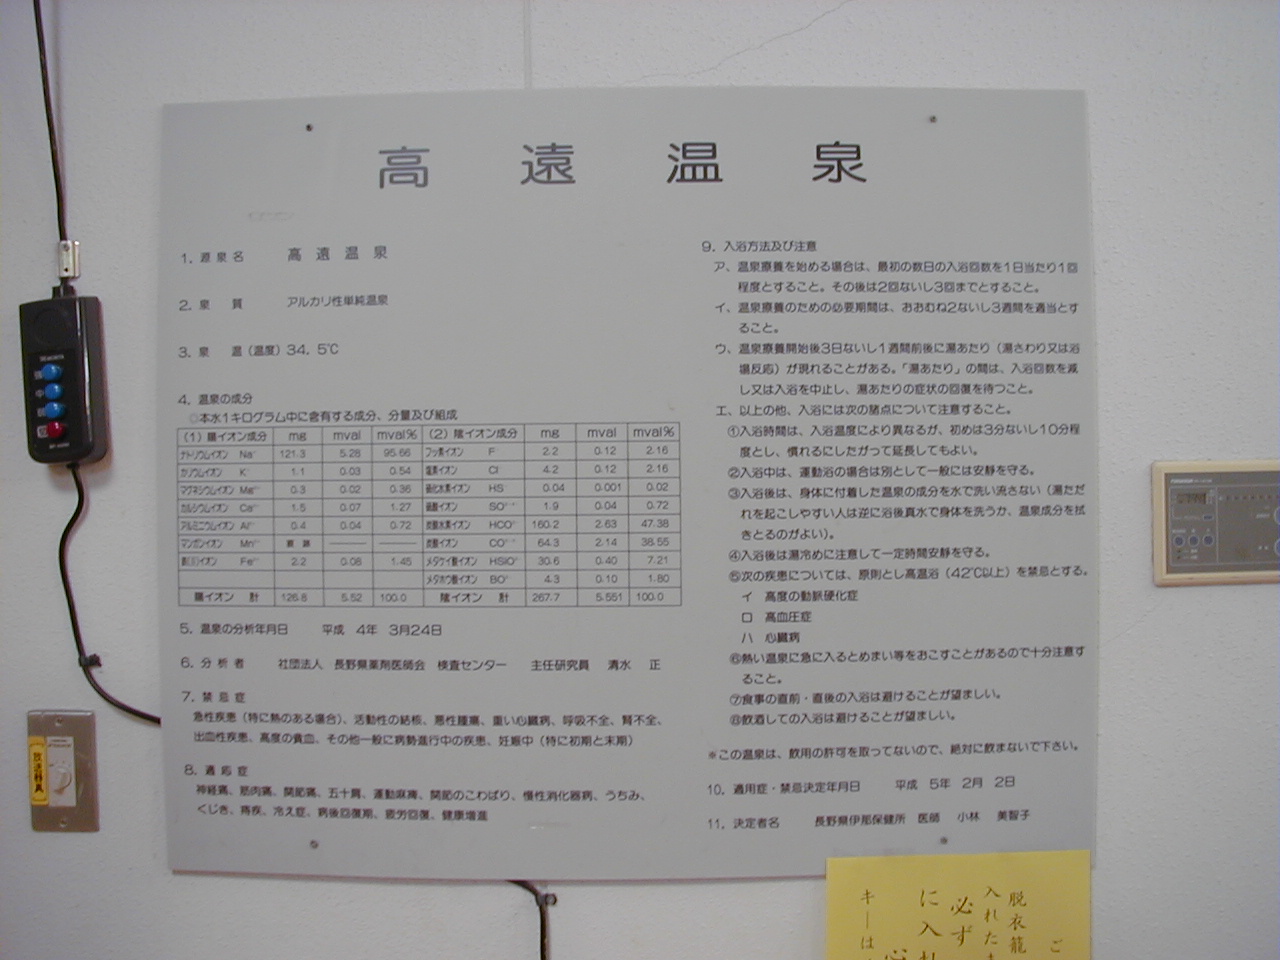 高遠温泉
1. 源泉名 高遠温泉
2. 泉質 アルカリ性単純温泉
3. 泉温(温度)34.5℃
4. 温泉の成分
○本水1キログラム中に含有する成分、分量及び組成
(1)陽イオン成分 mg mval mval% (2)陰イオン成分 mg mval mval%
ナトリウムイオン Na 121.3 5.28 95.66 フッ素イオン F 2.2 0.12 2.16
カリウムイオン K 1.1 0.03 0.54 塩素イオン Cl 4.2 0.12 2.16
マグネシウムイオン Mg 0.3 0.02 0.36 硫化水素イオン HS 0.04 0.001 0.02
カルシウムイオン Ca 1.5 0.07 1.27 硫酸イオン SO 1.9 0.04 0.72
アルミニウムイオン Al 0.4 0.04 0.72 炭酸水素イオン HCO 160.2 2.63 47.38
マンガンイオン Mn 痕跡 炭酸イオン CO 64.3 2.14 38.55
鉄(II)イオン Fe 2.2 0.08 1.45 メタケイ酸イオン HSiO 30.6 0.40 7.21
メタホウ酸イオン BO 4.3 0.10 1.80
陽イオン 計 126.8 5.52 100.0 陰イオン 計 267.7 5.551 100.0
5. 温泉の分析年月日 平成 4年 3月24日
6. 分析者 社団法人 長野県薬剤医師会 検査センター 主任研究員 清水 正
7. 禁忌症
急性疾患(特に熱のある場合)、活動性の結核、悪性腫瘍、重い心臓病、呼吸不全、腎不全、
出血性疾患、高度の貧血、その他一般に病勢進行中の疾患、妊娠中(特に初期と末期)
8. 適応症
神経痛、筋肉痛、関節痛、五十肩、運動麻痺、関節のこわばり、慢性消化器病、うちみ、
くじき、痔疾、冷え症、病後回復期、疲労回復、健康増進
9. 入浴方法及び注意
ア、温泉療養を始める場合は、最初の数日の入浴回数を1日当たり1回
程度とすること。その後は2回ないし3回までとすること。
イ、温泉療養のための必要期間は、おおむね2ないし3週間を適当とす
ること。
ウ、温泉療養開始後3日ないし1週間前後に湯あたり(湯さわり又は浴
場反応)が現れることがある。「湯あたり」の間は、入浴回数を減
し又は入浴を中止し、湯あたりの症状の回復を待つこと。
エ、以上の他、入浴には次の諸点について注意すること。
①入浴時間は、入浴温度により異なるが、初めは3分ないし10分程
度とし、慣れるにしたがって延長してもよい。
②入浴中は、運動浴の場合は別として一般には安静を守る。
③入浴後は、身体に付着した温泉の成分を水で洗い流さない(湯ただ
れを起こしやすい人は逆に浴後真水で身体を洗うか、温泉成分を拭
きとるのがよい)。
④入浴後は湯冷めに注意して一定時間安静を守る。
⑤次の疾患については、原則とし高温浴(42℃以上)を禁忌とする。
イ 高度の動脈硬化症
ロ 高血圧症
ハ 心臓病
⑥熱い温泉に急に入るとめまい等をおこすことがあるので十分注意す
ること。
⑦食事の直前・直後の入浴は避けることが望ましい。
⑧飲酒しての入浴は避けることが望ましい。
※この温泉は、飲用の許可を取ってないので、絶対に飲まないで下さい。
10. 適用症・禁忌決定年月日 平成 5年 2月 2日
11. 決定者名 長野県伊那保健所 医師 小林 美智子
放送器具
ご
脱衣籠
入れたま
必ず
に入れ
キーは